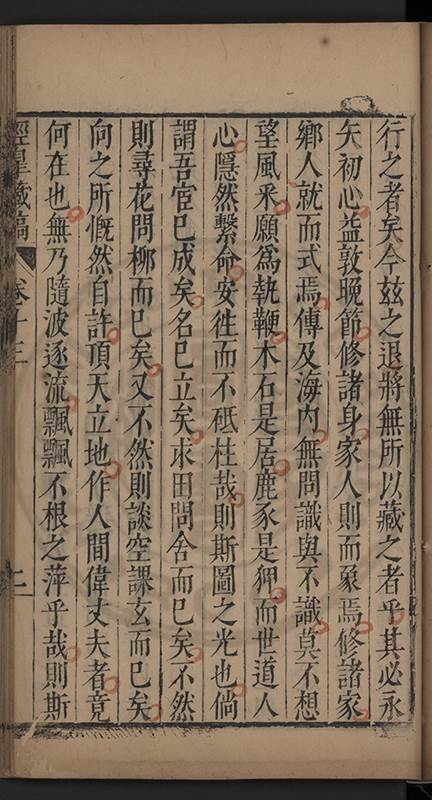 行之者矣今玆之退將無所以藏之者乎其必永
矢初心益敦晚節修諸身家人則而象焉修諸家
鄉人就而式焉傳及海內無問識與不識莫不想
望風釆願爲執鞭木石是居鹿豕是狎而世道人
心隱然繫命安徃而不砥柱哉則斯圖之光也倘
謂吾宦已成矣名已立矣求田問舍而已矣不然
則尋花問柳而已矣又不然則談空課玄而已矣
向之所慨然自許頂天立地作人間偉丈夫者竟
何在也無乃隨波逐流飄飄不根之萍乎哉則斯
涇臯藏稿
卷十三
二